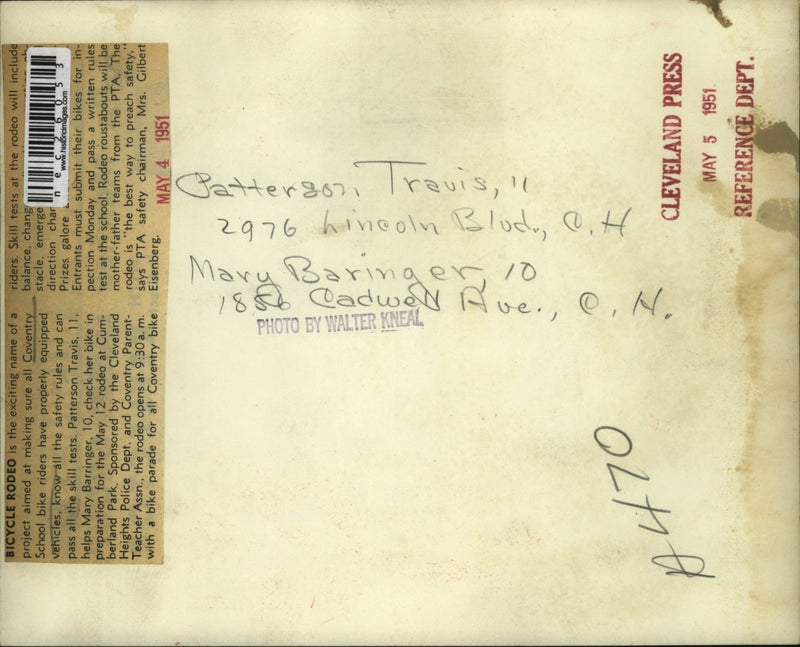 BICYCLE RODEO is the exciting name of a
project aimed at making sure all Coventry
School bike riders have properly equipped
vehicles, know all the safety rules and can
pass all the skill tests. Patterson Travis, 11,
helps Mary Barringer, 10, check her bike in
preparation for the May 12 rodeo at Cum-
berland Park. Sponsored by the Cleveland
Heights Police Dept. and Coventry Parent-
Teacher Assn., the rodeo opens at 9:30 a.m.
with a bike parade for all Coventry bike
riders. Skill tests at the rodeo will include
balance, chang
stacle, emerge
direction char
Prizes galore
Entrants must submit their bikes for in-
pection Monday and pass a written rules
test at the school. Rodeo roustabouts will be
mother-father teams from the PTA. The
rodeo is "the best way to preach safety,"
says PTA safety chairman, Mrs. Gilbert
Eisenberg.
nec26053
www.historicimages.com
MAY 4 1951
Patterson Travis, 11
2976 Lincoln Blvd., C.H
Mary Baringer, 10
1886 Cadwell Ave., C.H.
PHOTO BY WALTER KNEAL
CLEVELAND PRESS
MAY 5 1951
REFERENCE DEPT.
A470